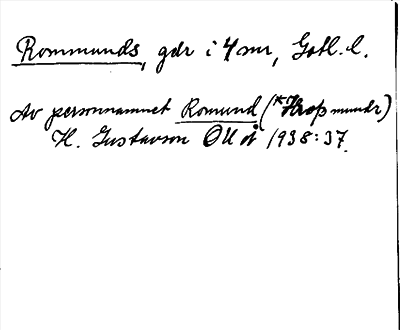 Rommunds, gdr i 4 mr, Gotl. l.
Av personnamnet Romund (*Hropmundr)
H. Gustavson OUÅ 1938:37.